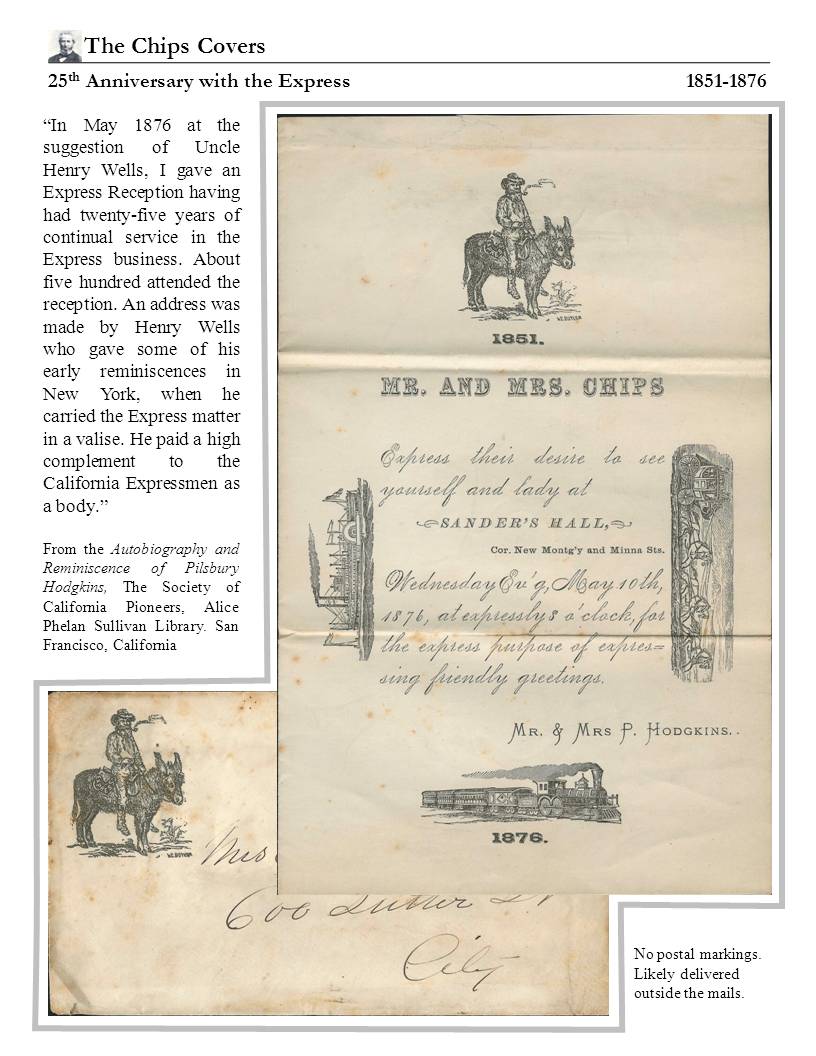 The Chips Covers
25th Anniversary with the Express 1851-1876
“In May 1876 at the
suggestion of Uncle
Henry Wells, I gave an
Express Reception having
had twenty-five years of
continual service in the
Express business. About
five hundred attended the
reception. An address was
made by Henry Wells
who gave some of his
early reminiscences in
New York, when he
carried the Express matter
in a valise. He paid a high
complement to the
California Expressmen as
a body.”
From the Autobiography and
Reminiscence of Pilsbury
Hodgkins, The Society of
California Pioneers, Alice
Phelan Sullivan Library. San
Francisco, California
W.C.BUTLER
1851.
MR. AND MRS. CHIPS
Express their desire to see
yourself and lady at
SANDER'S HALL,
Cor. New Montg'y and Minna Sts.
Wednesday Ev'g, May 10th,
1876, at expressly 8 o'clock, for
the express purpose of expres=
sing friendly greetings.
Mr. & Mrs P. Hodgkins..
1876.
W.C.BUTLER
Mrs
600 Sutter St
City
No postal markings.
Likely delivered
outside the mails.